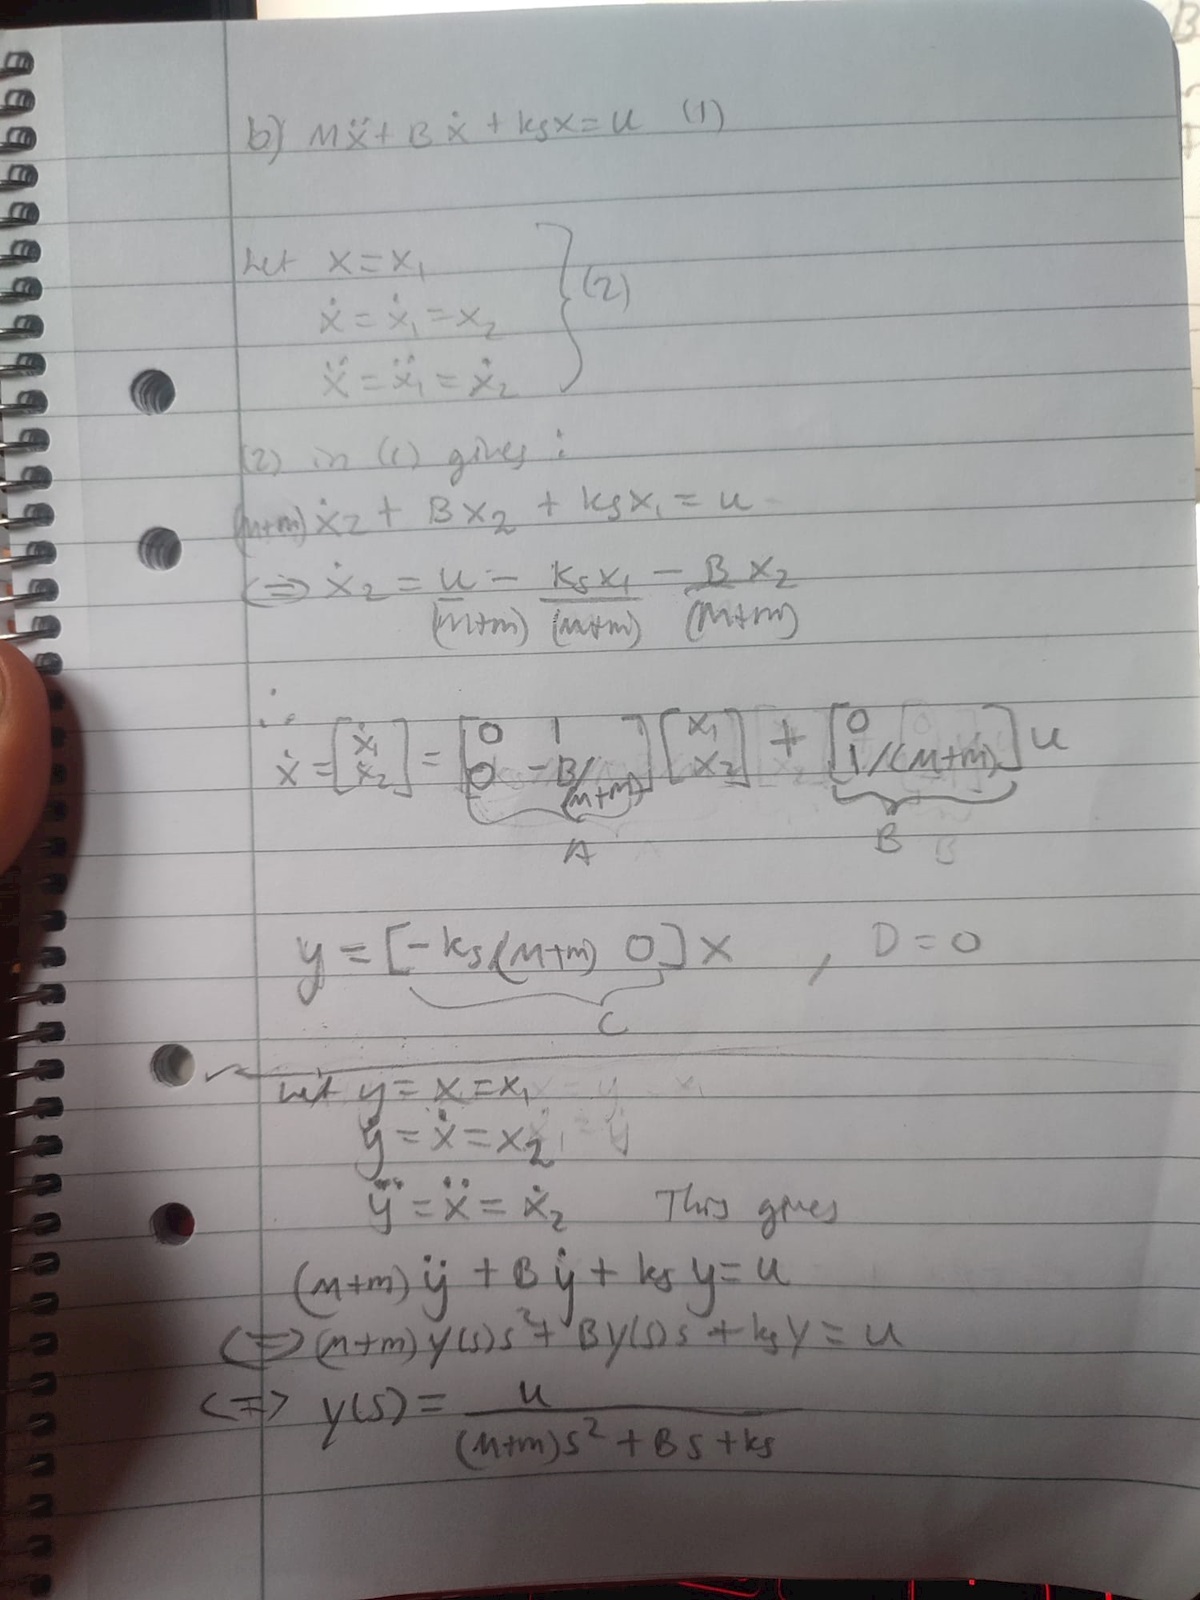 b) Mẍ + Bẋ + ksx = u (1)
Let x = x₁
ẋ = ẋ₁ = x₂
ẍ = ẍ₁ = ẋ₂
} (2)
(2) in (1) gives :
(M+m)ẋ₂ + Bx₂ + ksx₁ = u
<=> ẋ₂ = u/(M+m) - ksx₁/(M+m) - B/(M+m) x₂
∴
ẋ = [ẋ₁; ẋ₂] = [0 1; 0 -B/(M+m)] [x₁; x₂] + [0; 1/(M+m)] u
A B B
y = [-ks/(M+m) 0] x , D = 0
C
Let y = x = x₁
ẏ = ẋ = x₂
ÿ = ẍ = ẋ₂ This gives
(M+m) ÿ + Bẏ + ks y = u
<=> (M+m) y(s)s² + By(s)s + ksy = u
<=> y(s) = u/((M+m)s² + Bs + ks)